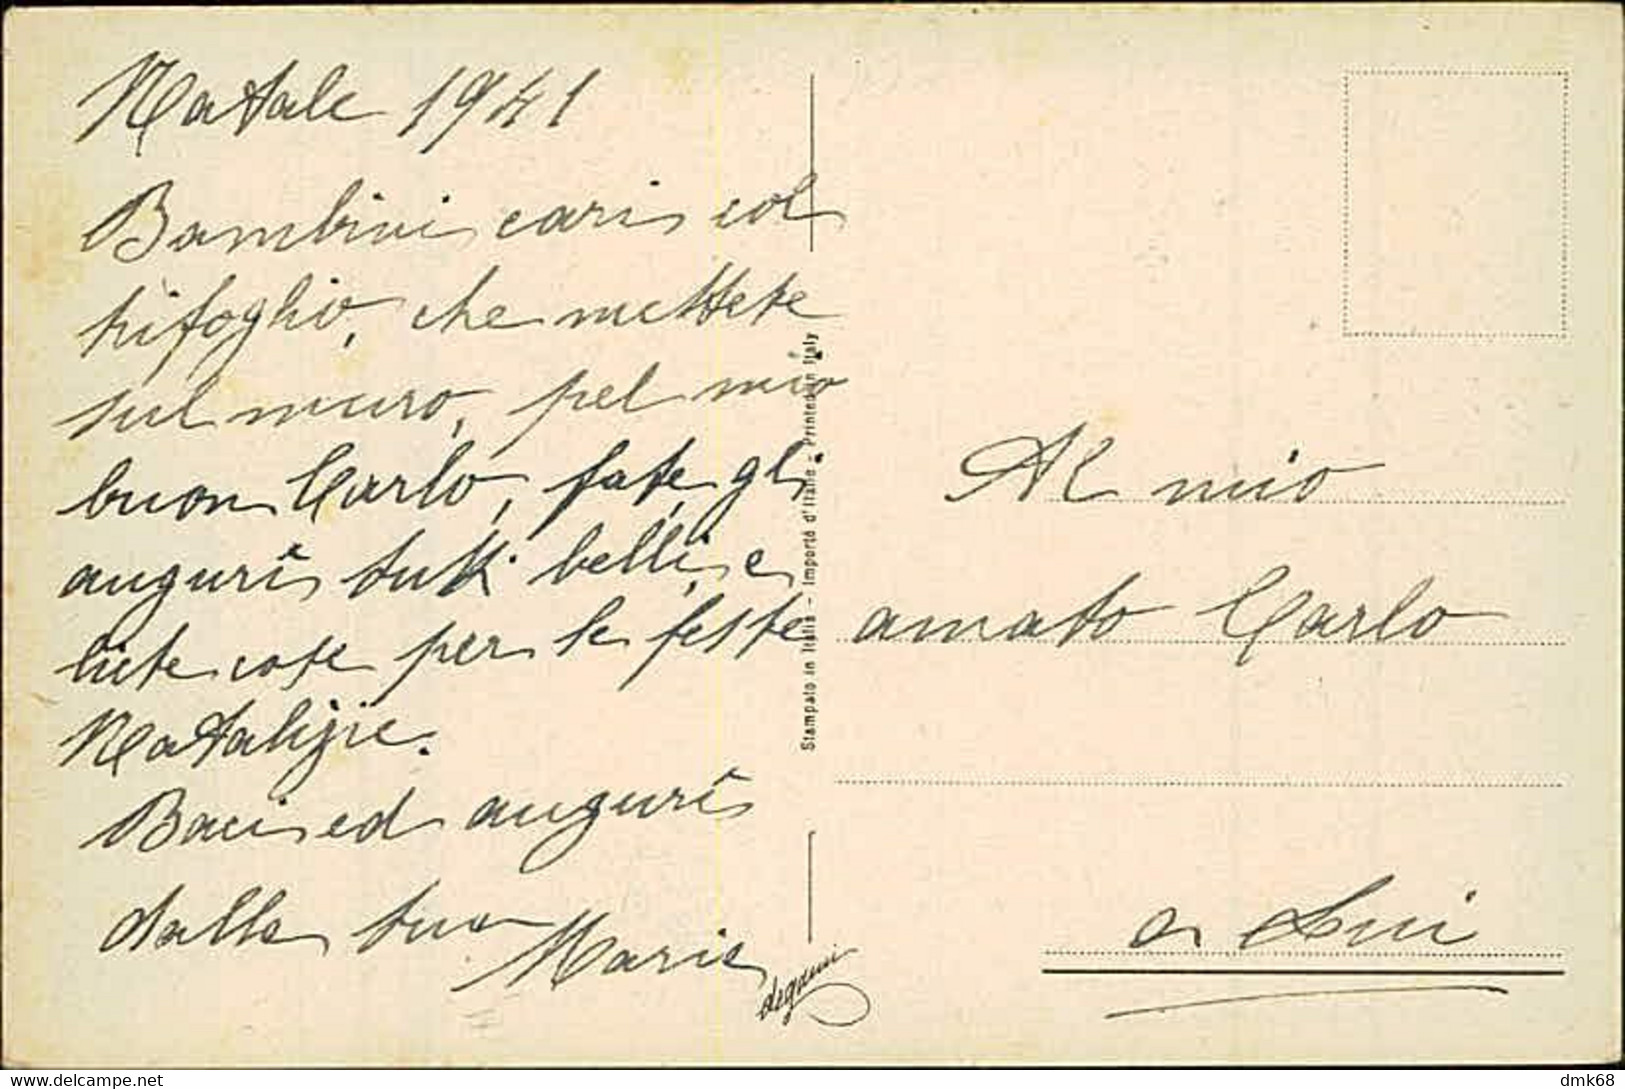 Natale 1941
Bambini cari col
trifoglio, che mettete
sul muro, pel mio
buon Carlo, fate gli
auguri tutti belli, e
liete cose per le feste
Natalizie.
Baci ed auguri
dalla tua
Maria
Stampato in Italia - Importé d'Italie - Printed in Italy
degami
Al mio
amato Carlo
a Lui
dmk68